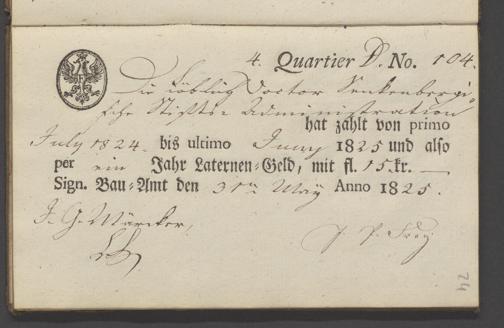 4. Quartier D. No. 104.
Die löbliche Doctor Senkenbergi-
sche Stiftts Administration
hat zahlt von primo
July 1824 bis ultimo Juny 1825 und also
per ein Jahr Laternen-Geld, mit fl. 15. kr. —
Sign. Bau-Amt den 31ten May Anno 1825.
J. G. Märcker,
J. P.
24